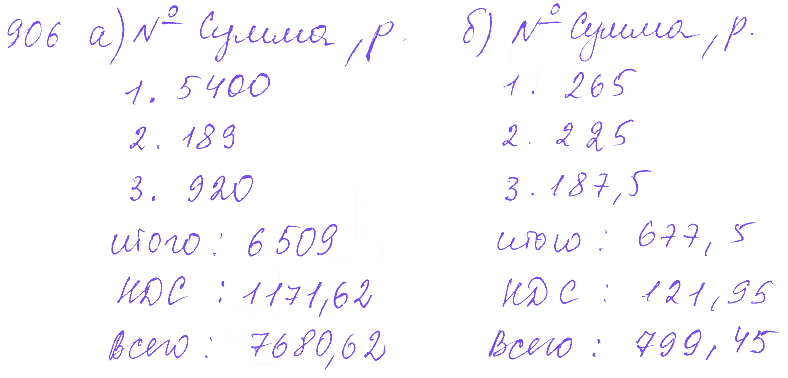 906 а) № Сумма, р.
1. 5400
2. 189
3. 920
итого: 6509
НДС: 1171,62
Всего: 7680,62
б) № Сумма, р.
1. 265
2. 225
3. 187,5
итого: 677,5
НДС: 121,95
Всего: 799,45